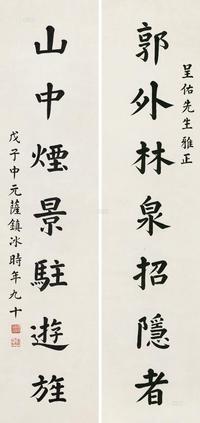 呈佑先生雅正
郭外林泉招隱者
山中煙景駐遊旌
戊子中元薩鎮冰時年九十